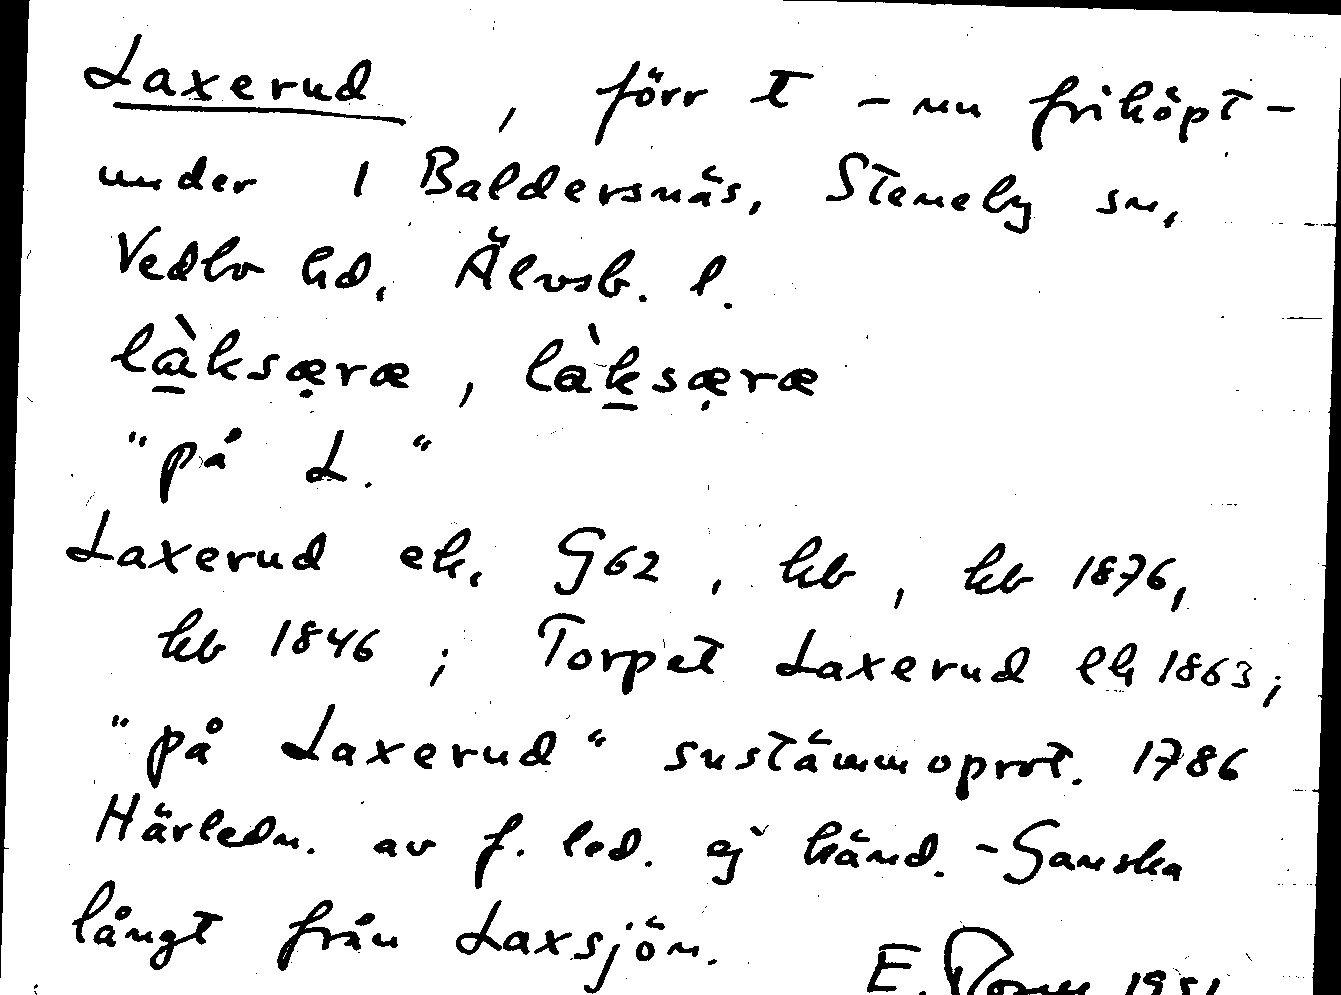 Laxerud, förr t – nu friköpt –
under 1 Baldersnäs, Steneby sn,
Vedbo hd, Älvsb. l.
là̱ksæ̣ræ, làḵsæ̣ræ
"på L."
Laxerud ek, G62, kb, kb 1876,
kb 1846; Torpet Laxerud lh 1863;
"på Laxerud" snstämmoprot. 1786
Härledn. av f. led. ej känd. – Ganska
långt från Laxsjön.
E. 1951